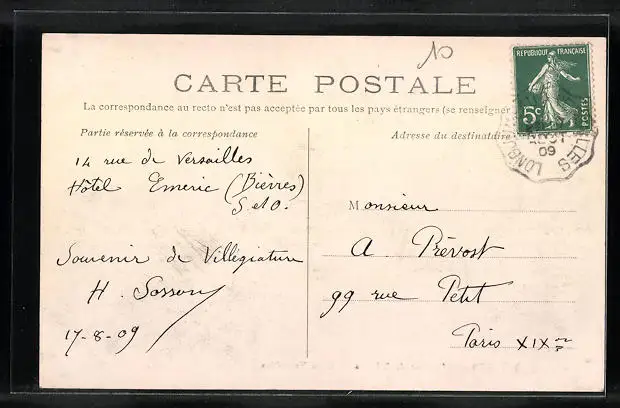 10
CARTE POSTALE
La correspondance au recto n'est pas acceptée par tous les pays étrangers (se renseigner
Partie réservée à la correspondance
Adresse du destinataire
REPUBLIQUE FRANÇAISE
5c
POSTES
09
14 rue de Versailles
Hôtel Emeric (Bièvres)
S et O.
Souvenir de Villégiature
H.
17-8-09
Monsieur
A Prévost
99 rue Petit
Paris XIXe